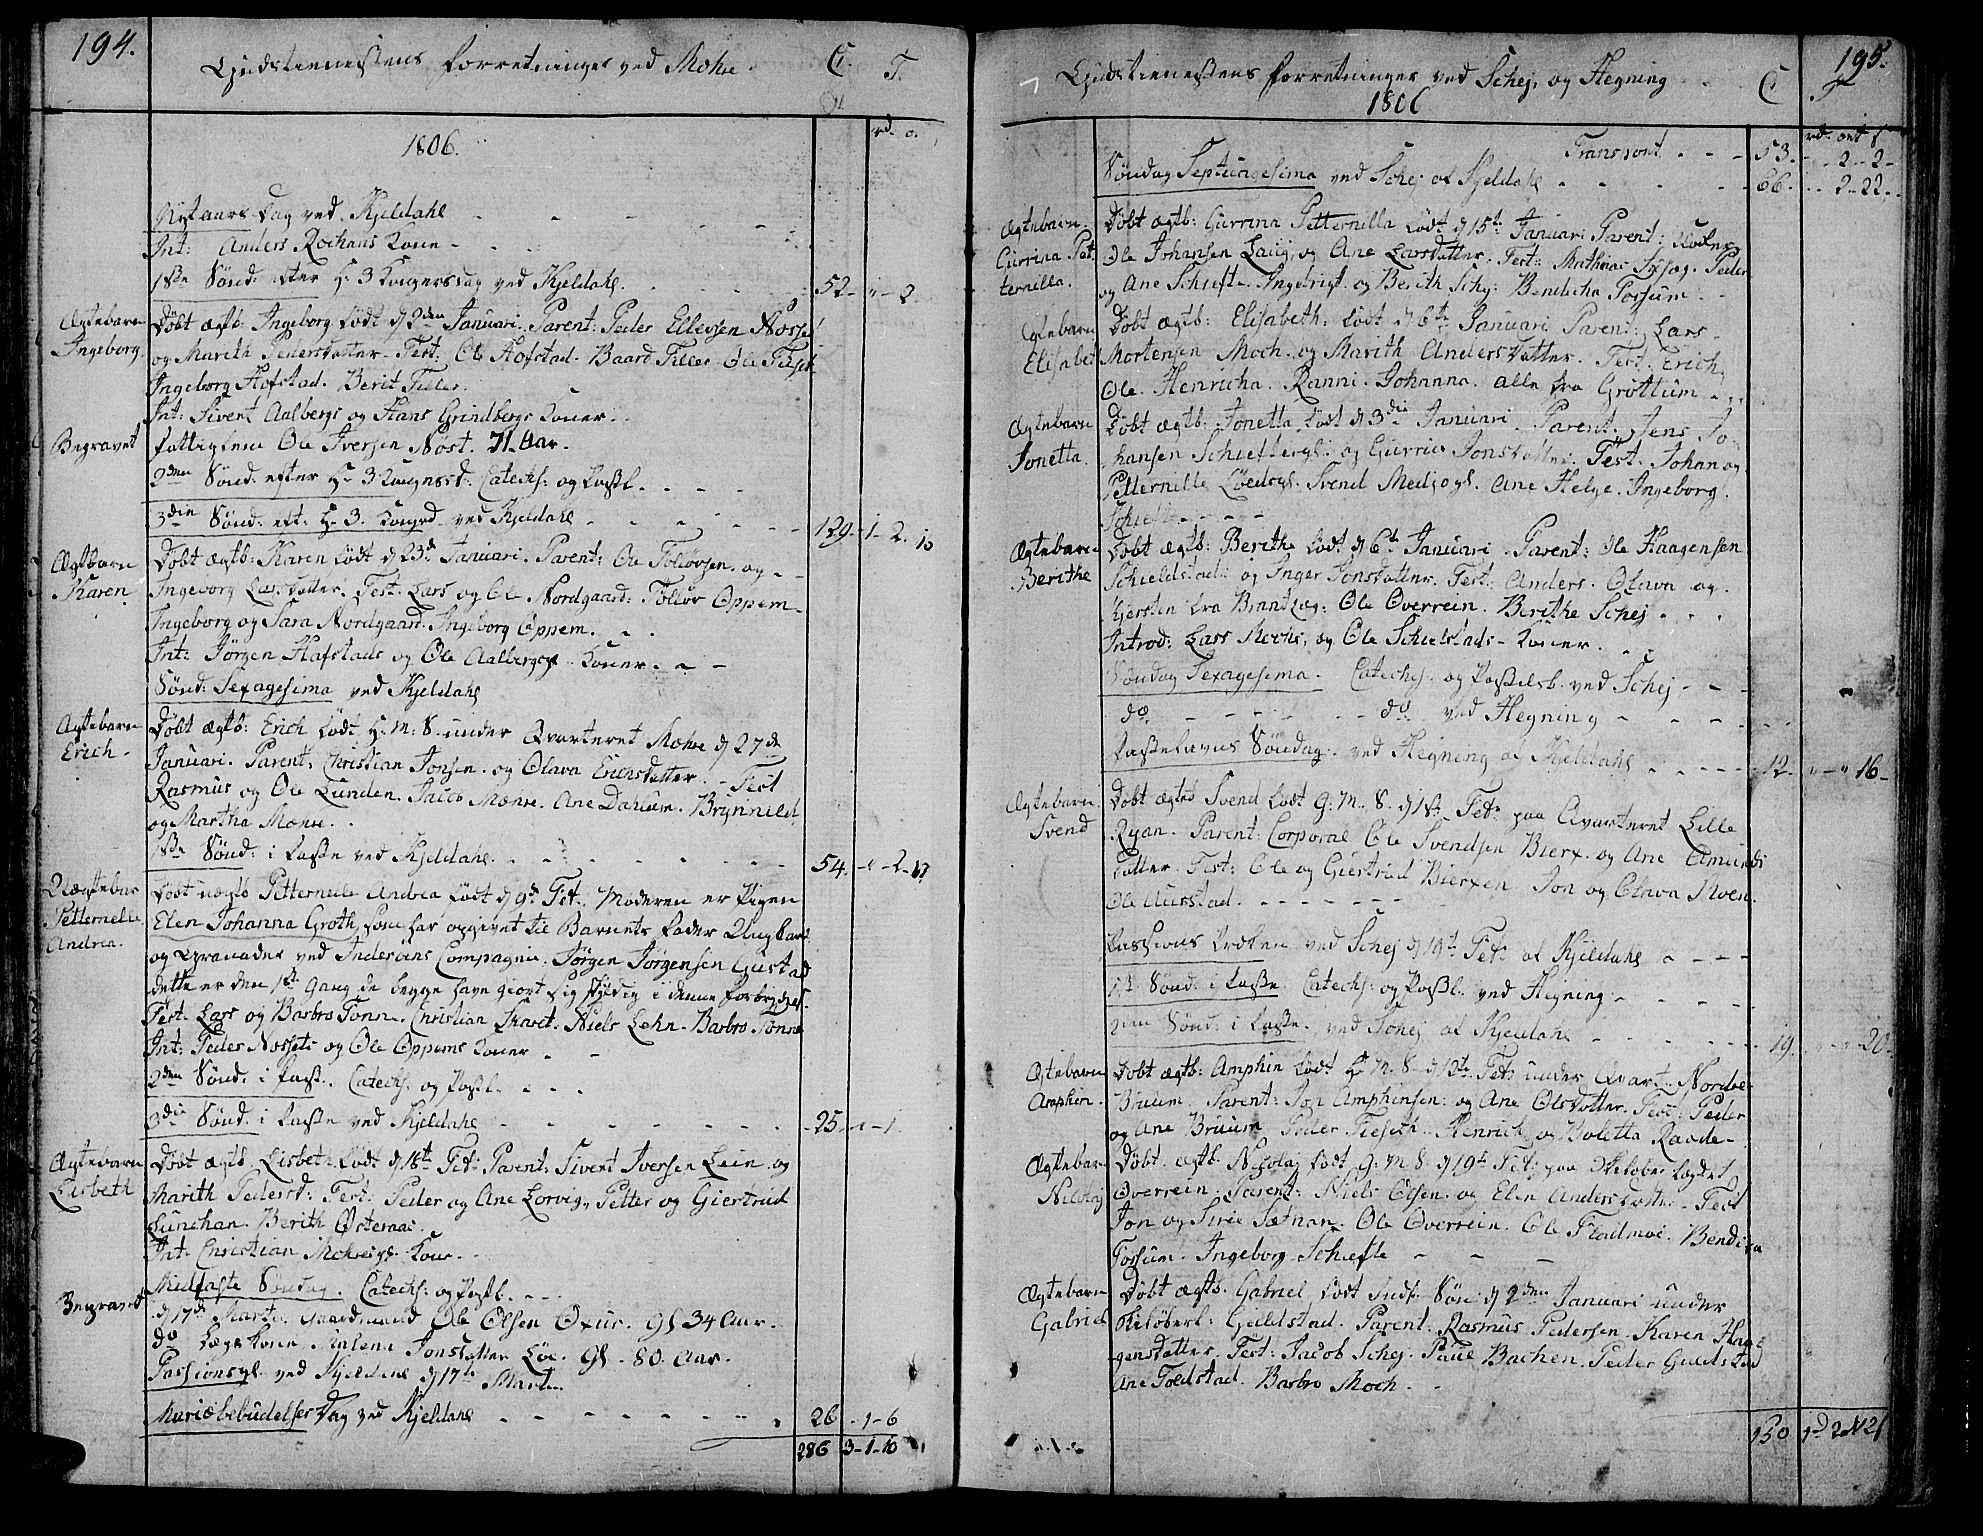 194.
Gudstienestens Forretninger ved Mohre. C. T.
rd. o.
1806.
Nytaars Dag ved Kjeldahl
Int: Anders Rochans Kone
1ste Sønd: efter H: 3 Kongersdag ved Kjeldahl. 52 - " - 2
Ægtebarn Ingeborg
Døbt ægtb: Ingeborg født d 2den Januari. Parent: Peder Ellevsen Nosset
og Marith Pedersdatter. Test: Ole Hofstad. Baard Tiller. Ole Tieset
Ingeborg Hofstad. Berit Tiller.
Int: Sivent Aalbergs og Hans Grindbergs Koner.
Begravet
fattiglem Ole Iversen Nøst. 71. Aar.
2den Sønd: efter H: 3 Kongersd: Catechs: og Postl.
3die Sønd: eft: H: 3. Kongrd ved Kjeldahl 129 - 1 - 2. 10
Ægtbarn Karen
Døbt ægtb: Karen født d 23d Januari. Parent: Ole Tolløvsen og
Ingeborg Larsdatter. Test: Lars og Ole Nordgaard: Tolløv Oppem.
Ingeborg og Sara Nordgaard. Ingeborg Oppem.
Int: Jørgen Hafstads og Ole Aalbergs Koner.
Sønd: Sexagesima ved Kjeldahl
Ægtebarn Erich
Døbt ægtb: Erich født H: M: S. under Qvarteret Mohre d 27de
Januari. Parent: Christian Jonsen og Olava Erichsdatter. Test
Rasmus og Ole Lunden. Jacob Mæhre. Ane Dahlum. Brynnild
og Martha Mæhre.
1ste Sønd: i Faste ved Kjeldahl. 54. - " - 2 - 17
Uægtebarn Petternelle Andrea.
Døbt uægtb Petternelle Andrea født d 9d Feb. Moderen er Pigen
Elen Johanna Groth som har opgivet til Barnets Fader Ungkarl
og Granader ved Inderøens Compagnie. Jørgen Jørgensen Gustad
dette er den 1ste Gang de begge have giort sig skyldig i denne Forbrydelse.
Test. Lars og Barbro Tonne. Christian Skaret. Niels Lehn. Barbro Tønne
Int: Peder Nossets og Ole Oppems Koner.
2den Sønd: i Fast. Catechs. og Postl.
3die Sønd. i Faste ved Kjeldahl 25. - " - 1.
Ægtebarn Lisbeth
Døbt ægtb. Lisbeth født d 16te Feb: Parent: Sivent Iversen Lein og
Marith Pedersd: Test: Peder og Ane Lorvig, Petter og Giertrud
Lunehan. Berith Østeraas.
Int: Christian Kone.
Midfaste Søndag. Catechs: og Postl.
Begravet
d 17de Marti. Gaardmand Ole Olsen Oxur. gl 34 Aar.
do Lægskone Malena Jonsdatter Løe. gl. 80. Aar.
Passionsgl ved Kjeldahl d 17de Martii
Mariæbebudelses Dag ved Kjeldahl 26 - 1 - 6
286 3 - 1 - 10
195.
Gudstienestens Forretninger ved Schej, og Hegning C. T.
1806
rd. ort s
Transport 53. - 2 - 2 -
Søndag Septuagesima ved Schej af Kjeldahl 66. 2 - 22.
Ægtebarn Gurrina Petternilla.
Døbt ægtb: Gurrina Petternilla født d 15te Januari Parent:
Ole Johansen Laug, og Ane Larsdatter. Test: Mathias Peder
og Ane Schiefte. Ingebrigt og Berith Schj: Bendicha Fossum.
Ægtebarn Elisabet
Døbt ægtb: Elisabeth: født d 6te Januari Parent: Lars
Mortensen Moch. og Marith Andersdatter. Test. Erich,
Ole. Henricha. Ranni. Johanna. alle fra Grøttum.
Ægtebarn Jonetta.
Døbt ægtb: Jonetta født d 3die Januari. Parent. Jens Jo-
hansen Schieftergl: og Gurrie Jonsdatter. Test. Johan og
Petternille Løedgl. Svend Medjogl. Ane Helge. Ingeborg.
Schiefte
Ægtebarn Berithe
Døbt ægtb: Berithe født d 6te Januari. Parent: Ole Haagensen
Schieldstad: og Inger Jonsdatter. Test: Anders. Olava og
Kjersten fra Brantzæg: Ole Overrein. Berithe Schej
Introd: Lars Mochs, og Ole Schielstads Koner.
Søndag Sexagesima. Catechs: og Postilsb. ved Schej
do do ved Hegning
Fastelavns Søndag. ved Hegning af Kjeldahl 12. " - " 16 -
Ægtebarn Svend
Døbt ægteb Svend født G: M. S. d 1ste Feb: paa Qvarteret Lille
Ryan. Parent: Corporal Ole Svendsen Bierx. og Ane Amunds
datter. Test: Ole og Giertrud Bierxen. Jon og Olava Hven
Ole Aurstad.
Passions Prædken ved Schej d 19de Feb: af Kjeldahl
1ste Sønd: i Faste Catechs: og Postl. ved Hegning.
2den Sønd: i Faste. ved Schej af Kjeldahl 19. " - " 20.
Ægtebarn Amphin.
Døbt ægtb: Amphin født H: M. S. d 12te Feb: under Qvart. Nordre
Bruum. Parent: Jon Amphinsen: og Ane Olsdatter. Test: Peder
og Ane Bruum. Peder Tieseth. Henrich og Boletta Raade
Ægtebarn Nicolaj
Døbt ægtb: Nicolaj født G: M: S. d 19de Feb: paa Skiløber Logiet
Overrein. Parent: Niels Olsen og Elen Andersdatter. Test
Jon og Sirie Sætnan. Ole Overrein. Ole Fladmoe. Bendixa
Fossum. Ingeborg Schiefte
Ægtebarn Gabriel
Døbt ægtb. Gabriel født Inds. Søn: d 2den Januari under
Skiløberl: Gieldstad. Parent: Rasmus Pedersen. Karen Haa-
gensdatter. Test: Jacob Schej. Paul Bachen. Peder Guldstad
Ane Foldstad. Barbro Moch.
150 1d 2 N 21